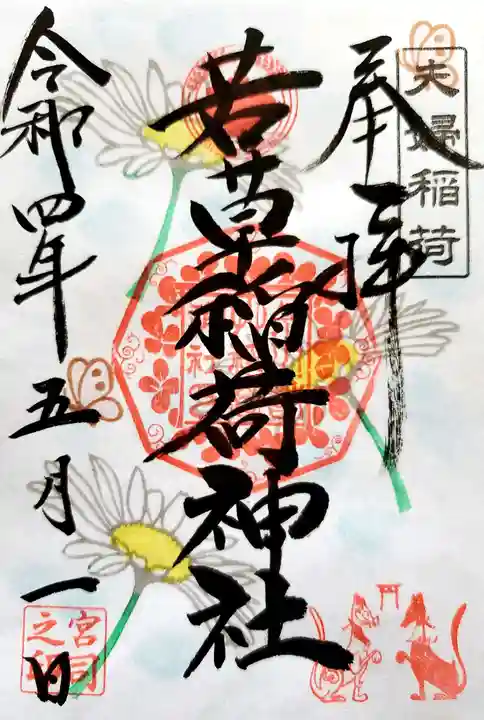 夫婦稲荷
奉拝
若草稲荷神社
令和四年五月一日
宮司
之印